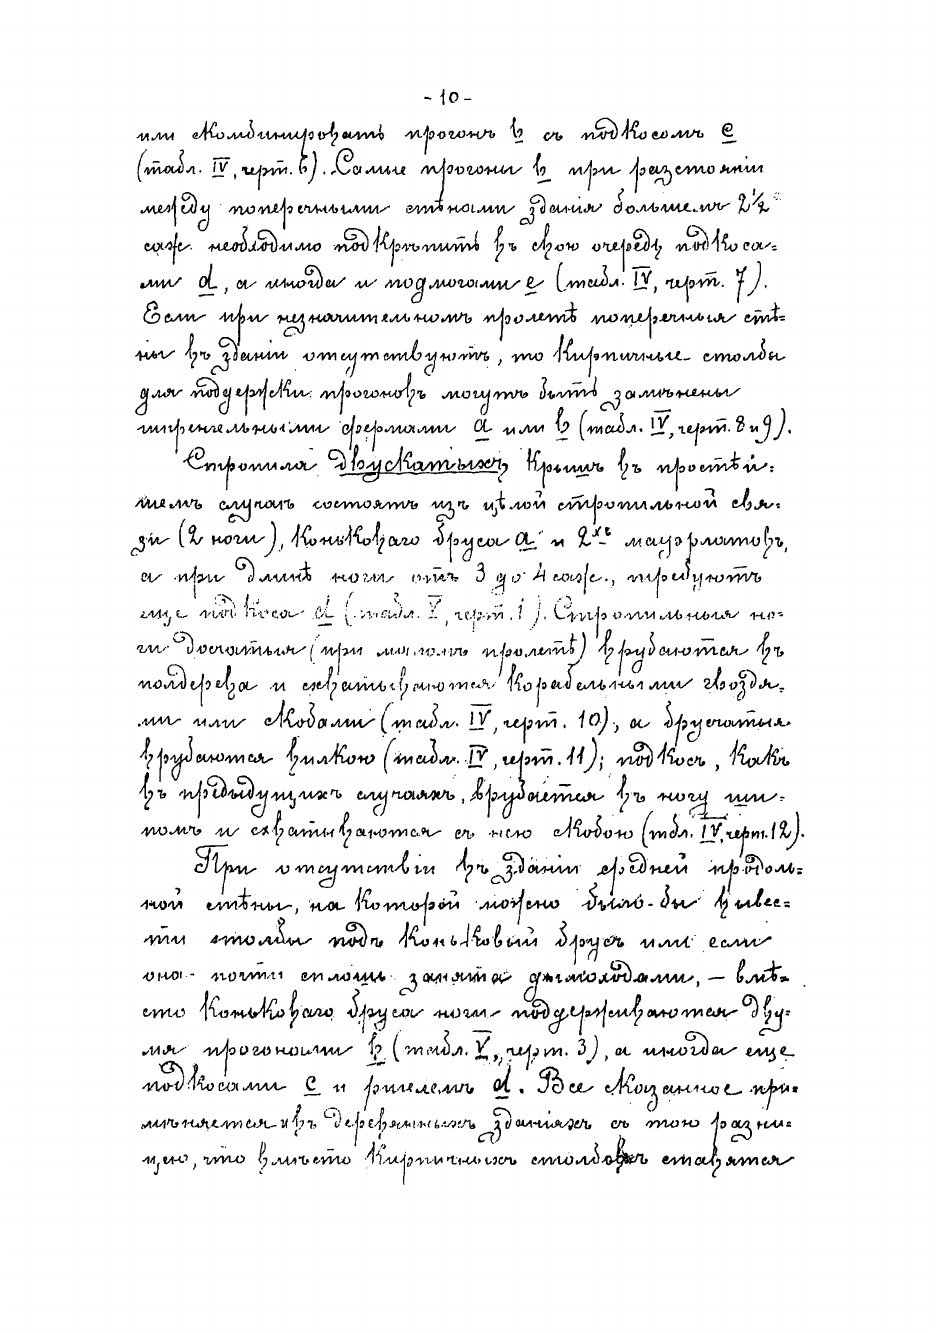 - 10 -
или скомбинировать прогонъ b съ подкосомъ c
(табл. IV, черт. 6). Самые прогоны b при разстояніи
между поперечными стѣнами зданія большемъ 2½
саж. необходимо подкрѣпить въ свою очередь подкоса=
ми d, а иногда и подмогами e (табл. IV, черт. 7).
Если при незначительномъ пролетѣ поперечныя стѣ=
ны въ зданіи отсутствуютъ, то кирпичные столбы
для поддержки прогоновъ могутъ быть замѣнены
шпренгельными фермами a или b (табл. IV, черт. 8 и 9).
Стропила двускатыхъ крышъ въ простѣй=
шемъ случаѣ состоятъ изъ цѣлой стропильной свя=
зи (2 ноги), коньковаго бруса a и 2хъ мауэрлатовъ,
а при длинѣ ноги отъ 3 до 4 саж., требуютъ
еще подкоса d (табл. V, черт. 1). Стропильныя но=
ги досчатыя (при маломъ пролетѣ) врубаются въ
полдерева и схватываются корабельными гвоздя=
ми или скобами (табл. IV, черт. 10), а брусчатыя
врубаются вилкою (табл. IV, черт. 11); подкосъ, какъ
въ предыдущихъ случаяхъ, врубается въ ногу ши=
помъ и схватываются съ нею скобою (тбл. IV, черт. 12).
При отсутствіи въ зданіи средней продоль=
ной стѣны, на которой можно было-бы вывес=
ти столбы подъ коньковый брусъ или если
она почти сплошь занята дымоходами, — вмѣ=
сто коньковаго бруса ноги поддерживаются дву=
мя прогонами b (табл. V, черт. 3), а иногда еще
подкосами c и ригелемъ d. Все сказанное при=
мѣняется и въ деревянныхъ зданіяхъ съ тою разни=
цею, что вмѣсто кирпичныхъ столбовъ ставятся